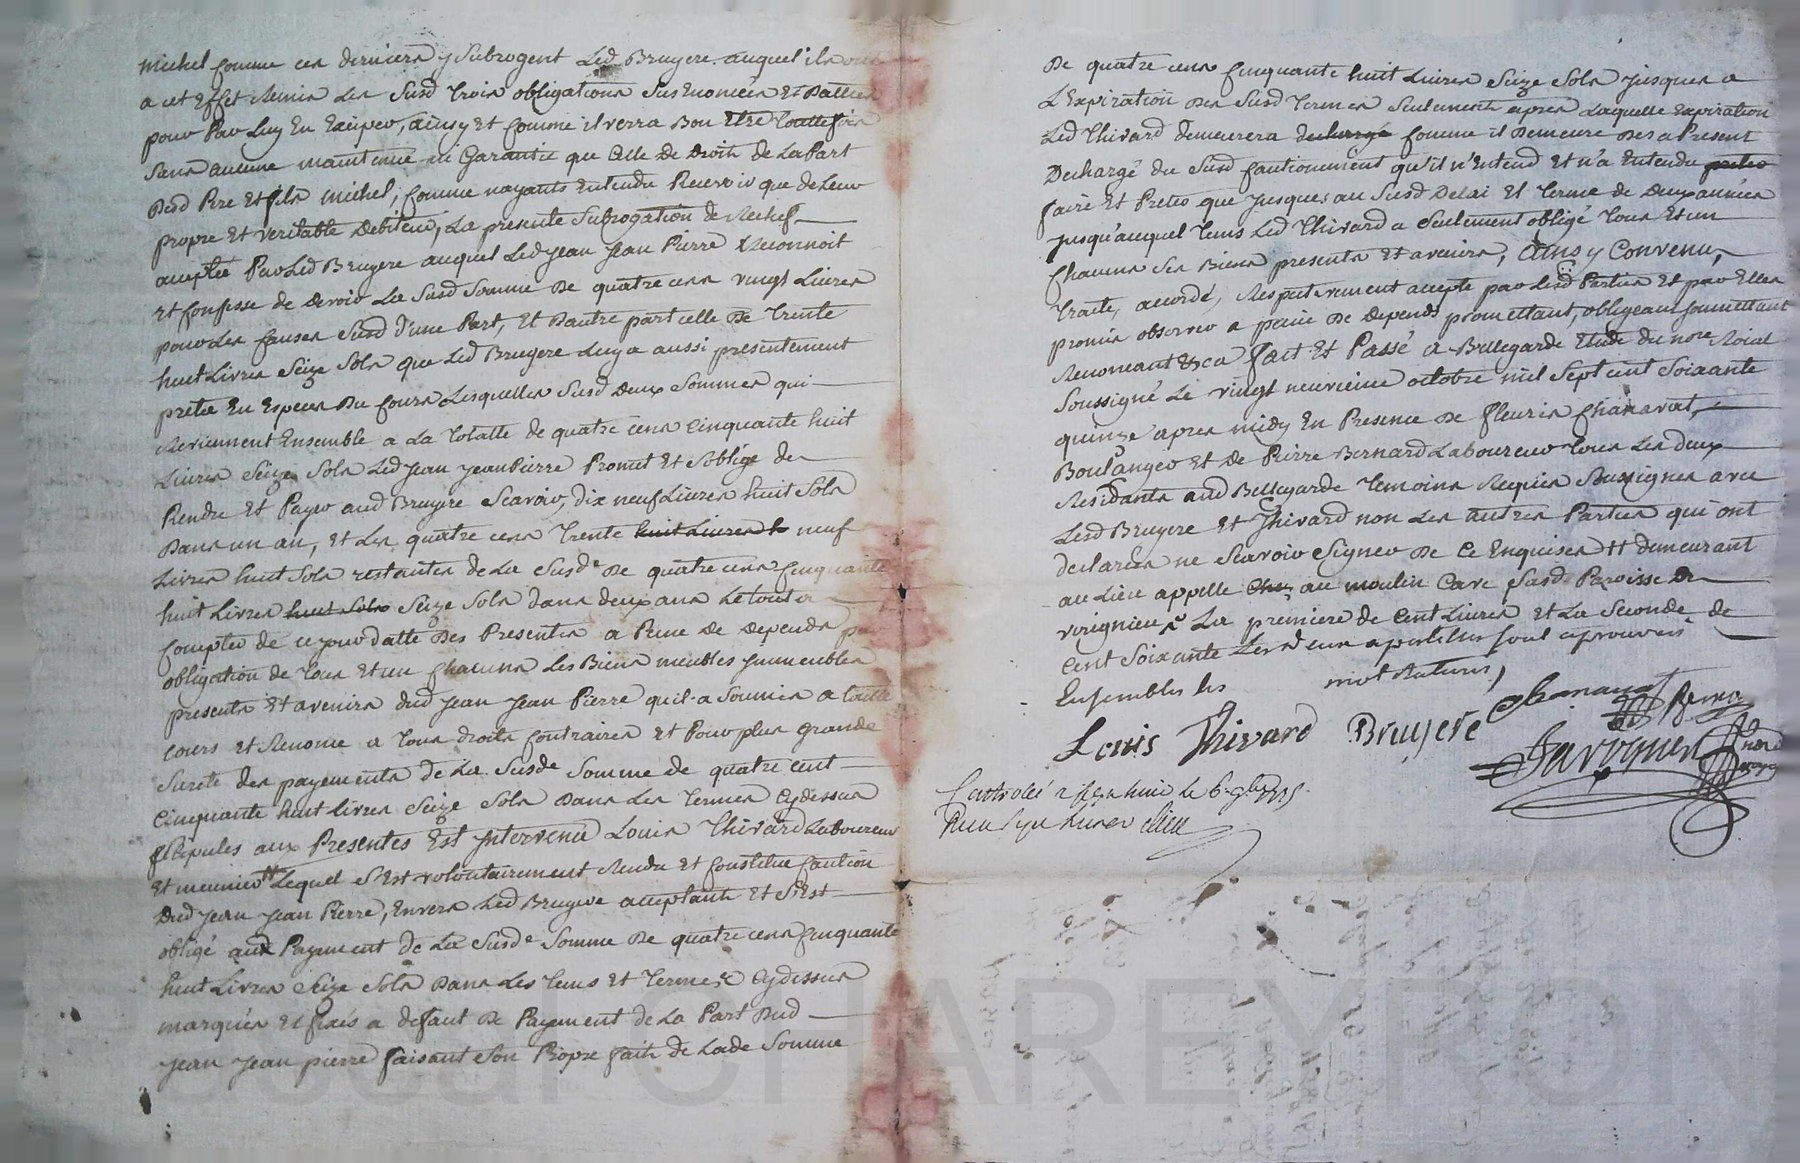 Michel comme ces derniers y subrogent Led Bruyere auquel ils ont
a cet Effet Remis Les Susd trois obligations Sus Enoncées Et Dattées
pour Par Luy En Exiper, ainsy Et comme il verra Bon Etre touttefois
Sans aucune maintenue ni Garantie que Celle De Droit de La Part
Desd Pere Et fils Michel, comme nayants Entendu Recevoir que de Leur
propre Et veritable Debiteur, La presente Subrogation de Rechef
acceptée Par Led Bruyere auquel Led Jean Jean Pierre Reconnoit
et confesse de devoir La Susd Somme De quatre cens vingt Livres
pour Les causes Susd d'une Part, Et Dautre part celle De trente
huit Livres Seize Sols que Led Bruyere Luy a aussi presentement
pretée En Especes Du cours Lesquelles Susd Deux Sommes qui
Reviennent Ensemble a La totalle de quatre cens Cinquante huit
Livres Seize Sols Led Jean Jean Pierre Promet Et Soblige de
Rendre Et Payer aud Bruyere Scavoir, dix neuf Livres huit Sols
Dans un an, Et Les quatre cens trente huit Livres neuf
Livres huit Sols restantes de La Susde De quatre cens Cinquante
huit Livres huit Sols Seize Sols dans deux ans Le tout a
compter de ce jour datte Des Presentes a Peine De depends
obligation de tous Et un chacuns Ses Biens meubles Immeubles
presents Et avenirs dud Jean Jean Pierre quil a Soumis a toutte
cours Et Renoncé a tous droits contraires Et Pour plus grande
Sureté des payements de La Susde Somme de quatre cent
Cinquante huit Livres Seize Sols Dans Les termes Cydessus
Stipules aux Presentes Est Intervenu Louis Thivard Laboureur
Et meunier # Lequel S'Est volontairement Rendu Et constitué caution
Dud Jean Jean Pierre, Envers Led Bruyere acceptant Et S'Est
obligé aud Payement de La Susde Somme De quatre cens Cinquante
huit Livres Seize Sols Dans Les tems Et termes Cydessus
marqués Et fixés a defaut De Payement de La Part Dud
Jean Jean pierre faisant Son Propre fait de Lade Somme
De quatre cens Cinquante huit Livres Seize Sols Jusques a
L'Expiration Des Susd termes Seulement apres Laquelle Expiration
Led Thivard demeurera dechargé comme il Demeure Des a Present
Dechargé du Susd cautionnement qu'il n'Entend Et n'a Entendu
faire Et Preter que Jusques au Susd Delai Et terme de Deux années
Jusqu'auquel tems Led Thivard a Seulement obligé tous Et un
chacuns Ses Biens presents Et avenirs, Ainsy Convenu,
traité, accordé, Respectivement accepté par Lesd Parties Et par Elles
promis observer a peine De depends promettant, obligeant Soumettant
Renonceant &ca fait Et Passé a Bellegarde Etude du nore Roial
Soussigné Le vingt neuvieme octobre mil Sept cent Soixante
quinze apres midy En Presence De fleuris Chanavat,
Boulanger Et De Pierre Bernard Laboureur tous Les deux
Residants aud Bellegarde temoins Requis Soussignes avec
Lesd Bruyere Et Thivard non Les autres Parties qui ont
declarées ne Scavoir Signer De Ce Enquises # demeurant
au Lieu appellé Chez au moulin Cave Susd Paroisse De
virignieu, La premiere de Cent Livres Et La Seconde de
Cent Soixante Les deux apostilles Sont aprouvées
Ensembles Les mot Ratures,
Chanavat
Bernard
Louis Thivard Bruyere
Javogues
Controlé a le 6. 9bre 1775.
Recu